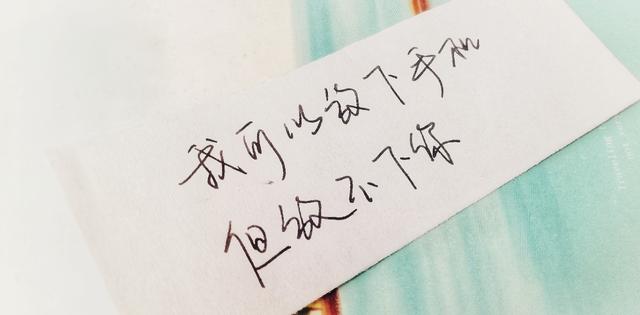 我可以放下手机
但放不下你